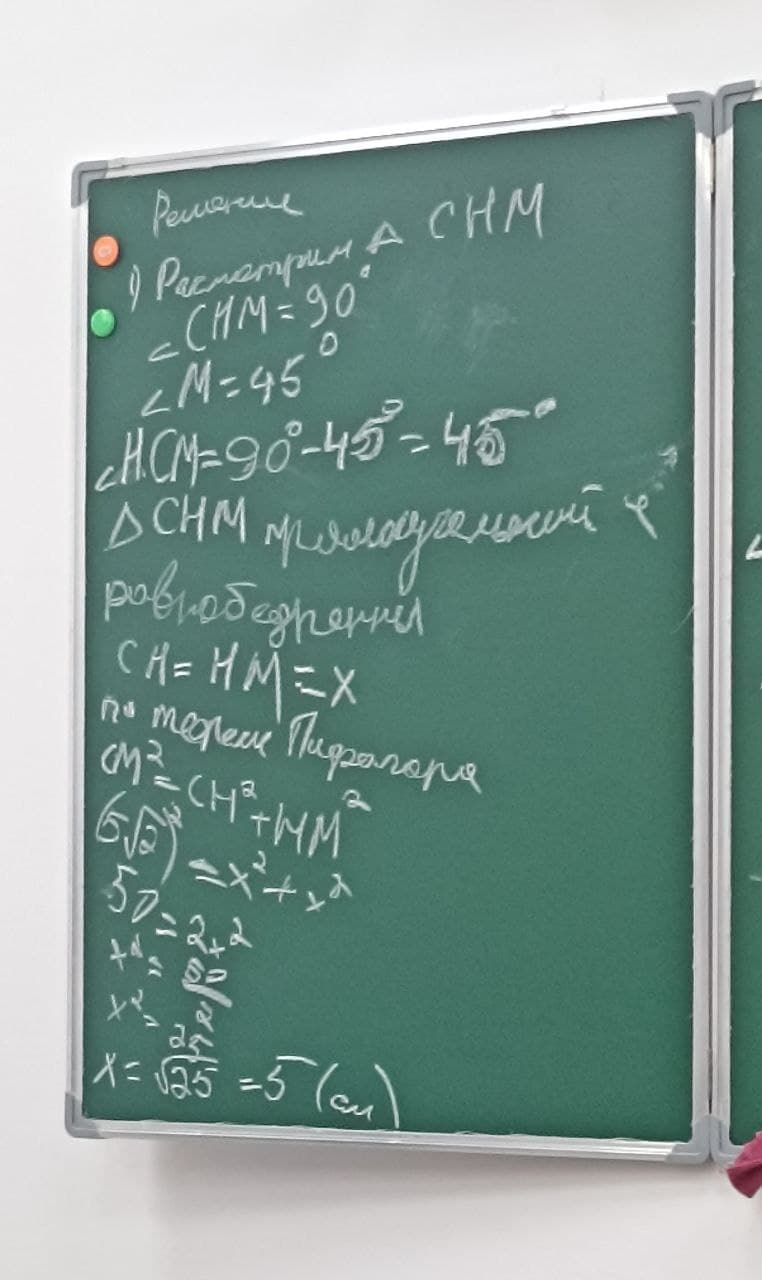 Решение
1) Расмотрим △ CHM
∠CHM=90°
∠M=45°
∠HCM=90°-45°=45°
△CHM прямоугольный и
равнобедренны
CH=HM=x
по теореме Пифагора
CM²=CH²+HM²
(5√2)²=x²+x²
50=2x²
x²=
x²=
x=√25=5(см)